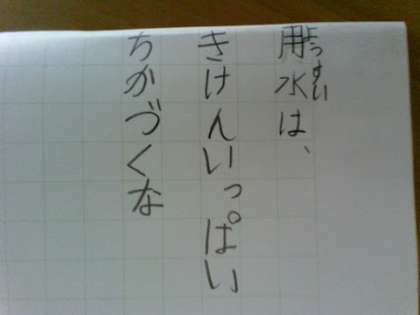 用水は、
ようすい
きけんいっぱい
ちかづくな